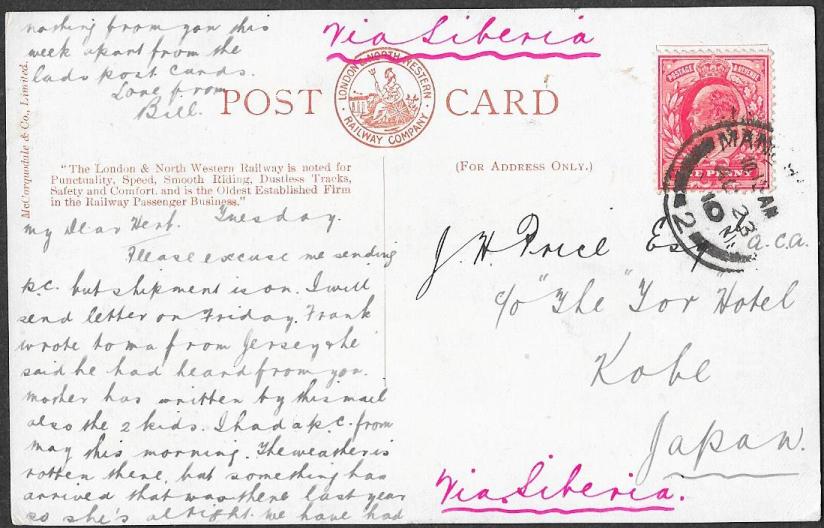 Via Siberia
POST CARD
LONDON & NORTH WESTERN
RAILWAY COMPANY
McCorquodale & Co., Limited.
"The London & North Western Railway is noted for
Punctuality, Speed, Smooth Riding, Dustless Tracks,
Safety and Comfort, and is the Oldest Established Firm
in the Railway Passenger Business."
(FOR ADDRESS ONLY.)
My Dear Herb. Tuesday.
Please excuse me sending
p.c. but shipment is on. I will
send letter on Friday. Frank
wrote to ma from Jersey & he
said he had heard from you.
Mother has written by this mail
also the 2 kids. I had a p.c. from
May this morning. The weather is
rotten there, but something has
arrived that was there last year
so she's alright. We have had
nothing from you this
week apart from the
lads post cards.
Love from
Bill.
J. H. Price Esq a.c.a.
c/o "The" Tor Hotel
Kobe
Japan.
Via Siberia.
POSTAGE REVENUE
ONE PENNY
MANCH
AU 23
10
2